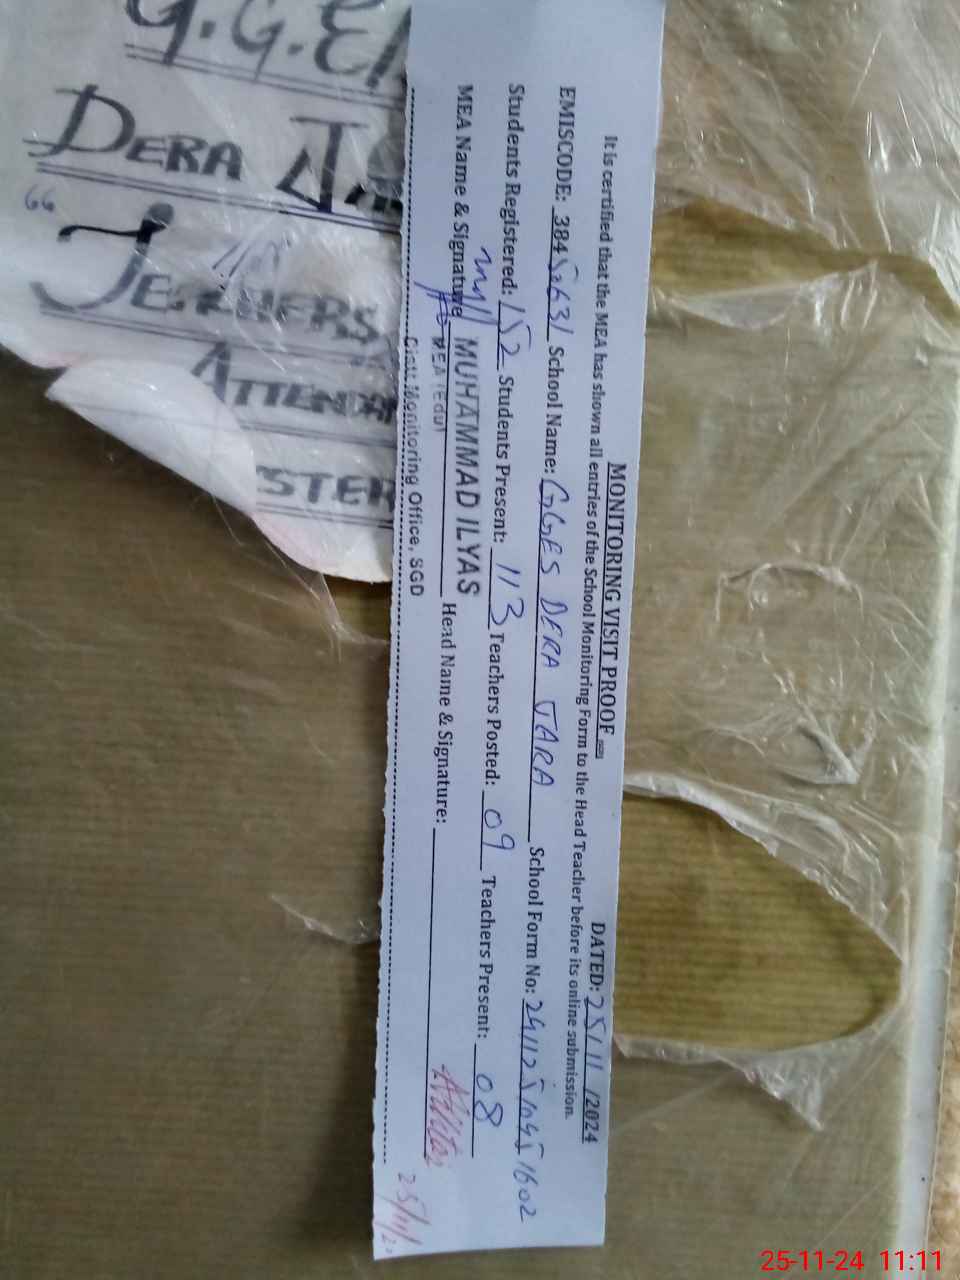 MONITORING VISIT PROOF
DATED: 25/11/2024
It is certified that the MEA has shown all entries of the School Monitoring Form to the Head Teacher before its online submission.
EMISCODE: 3845631 School Name: GGES DERA JARA School Form No: 24112510451602
Students Registered: 152 Students Present: 113 Teachers Posted: 09 Teachers Present: 08
MEA Name & Signature MUHAMMAD ILYAS Head Name & Signature:
MEA (Edu)
Distt: Monitoring Office, SGD
25/11/2
G.G.E
DERA JA
"JEACHERS
ATTENDA
STER
25-11-24 11:11